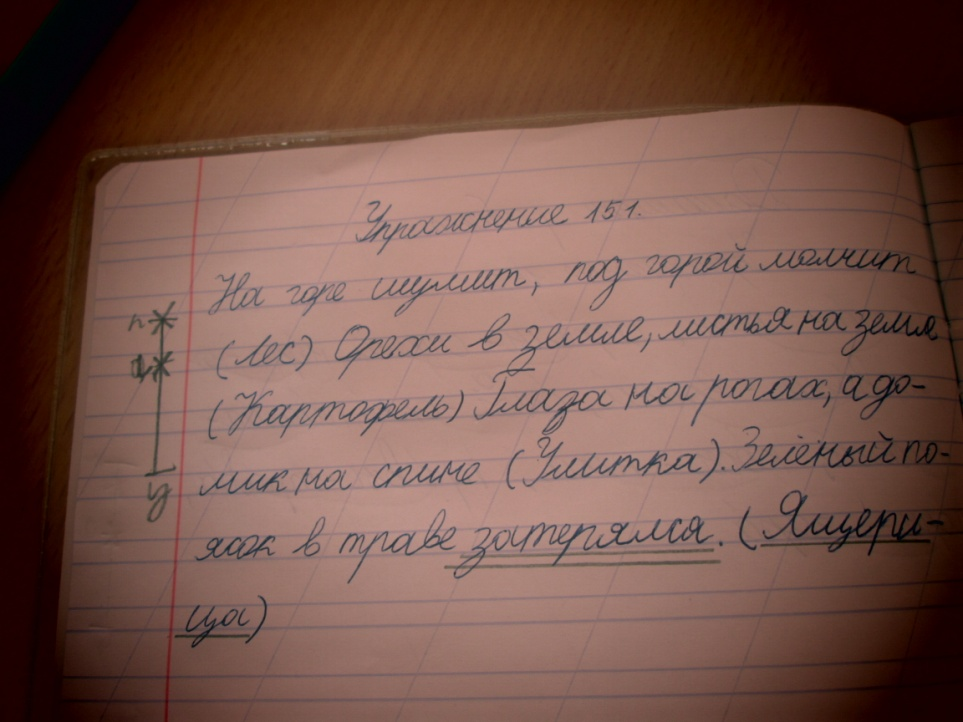 Упражнение 151.
На горе шумит, под горой молчит
(Лес) Орехи в земле, листья на земле
(Картофель) Глаза на рогах, а до-
мик на спине (Улитка). Зелёный по-
ясок в траве затерялся. (Ящери-
ца)
у